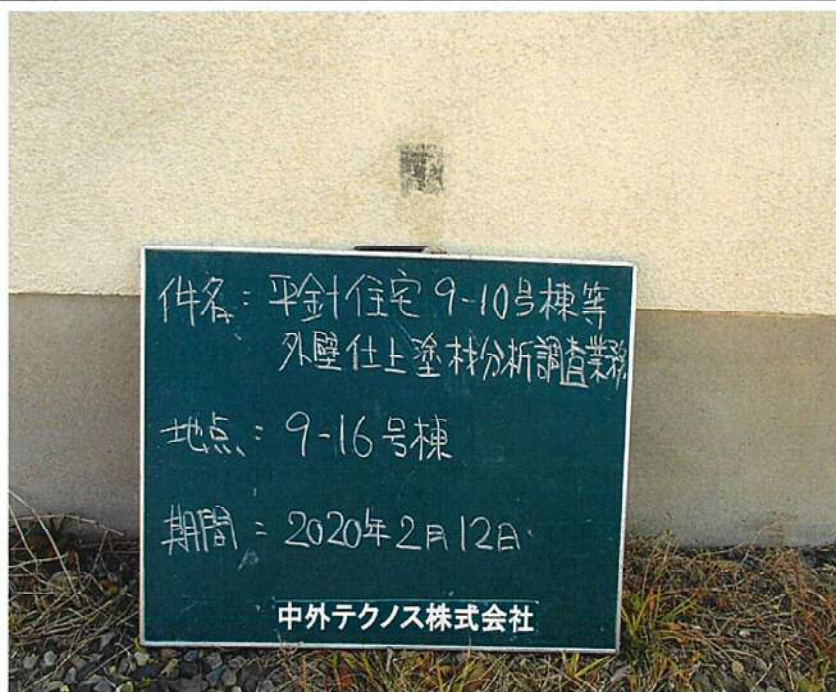 件名：平針住宅9-10号棟等
外壁仕上塗材分析調査業務
地点：9-16号棟
期間：2020年2月12日
中外テクノス株式会社